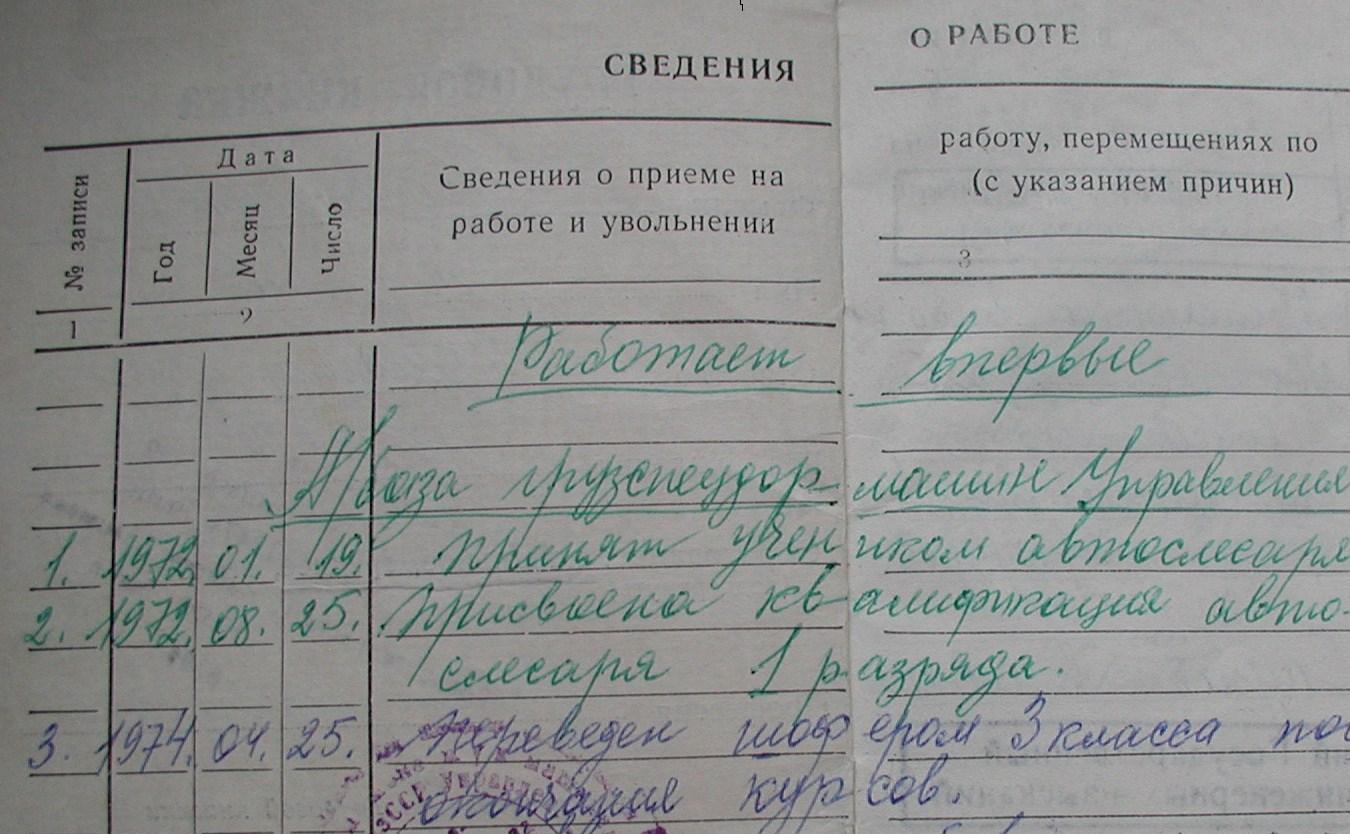 СВЕДЕНИЯ О РАБОТЕ
№ записи
Дата
Год
Месяц
Число
Сведения о приеме на работу, перемещениях по
работе и увольнении (с указанием причин)
1 2 3
Работает впервые
А/база грузспецдормашин Управления
1. 1972. 01. 19. принят учеником автослесаря
2. 1972. 08. 25. присвоена квалификация авто-
слесаря 1 разряда.
3. 1974. 04. 25. Переведен шофером 3 класса по
окончания курсов.